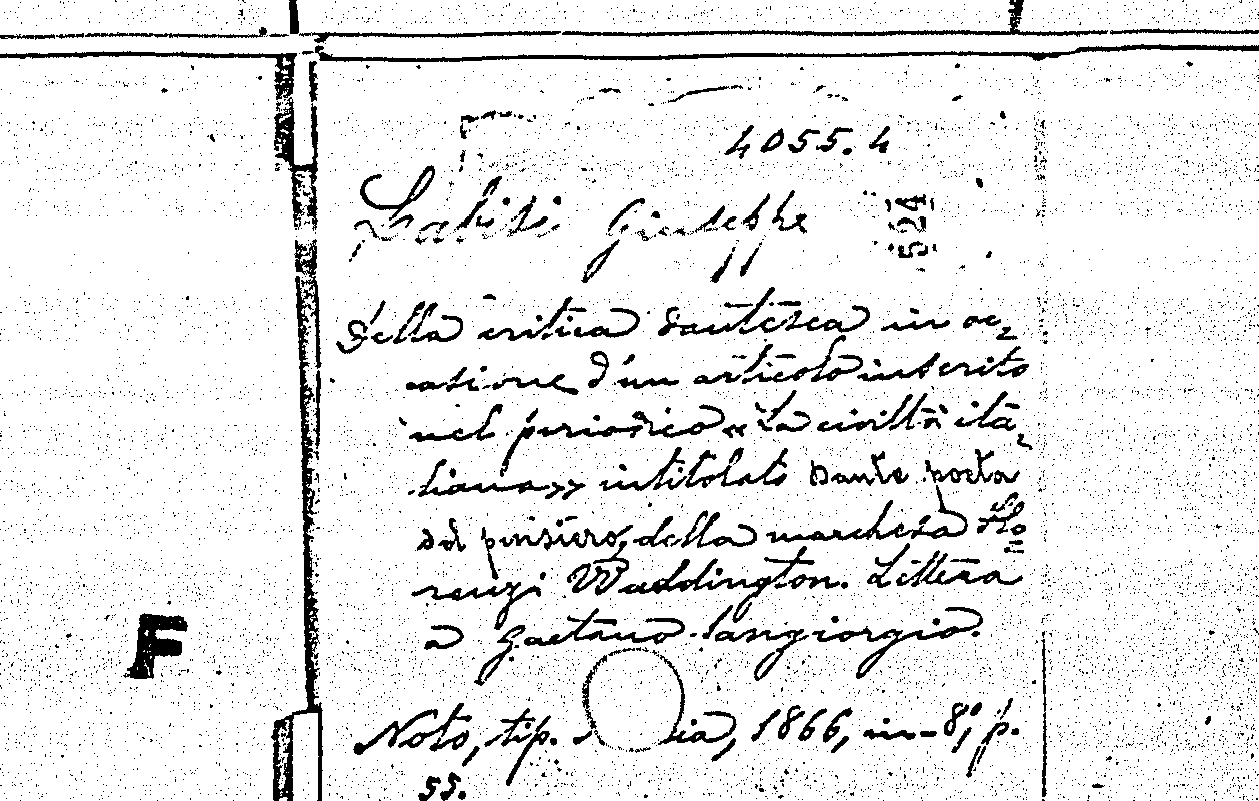 4055.4
Labisi Giuseppe
524
Della critica dantesca in oc-
casione d'un articolo inserito
nel periodico «La civiltà ita-
liana» intitolato Dante poeta
del pensiero, della marchesa Flo-
renzi Waddington. Lettera
a Gaetano Sangiorgio.
F
Noto, tip. 1866, in-8°, p.
55.